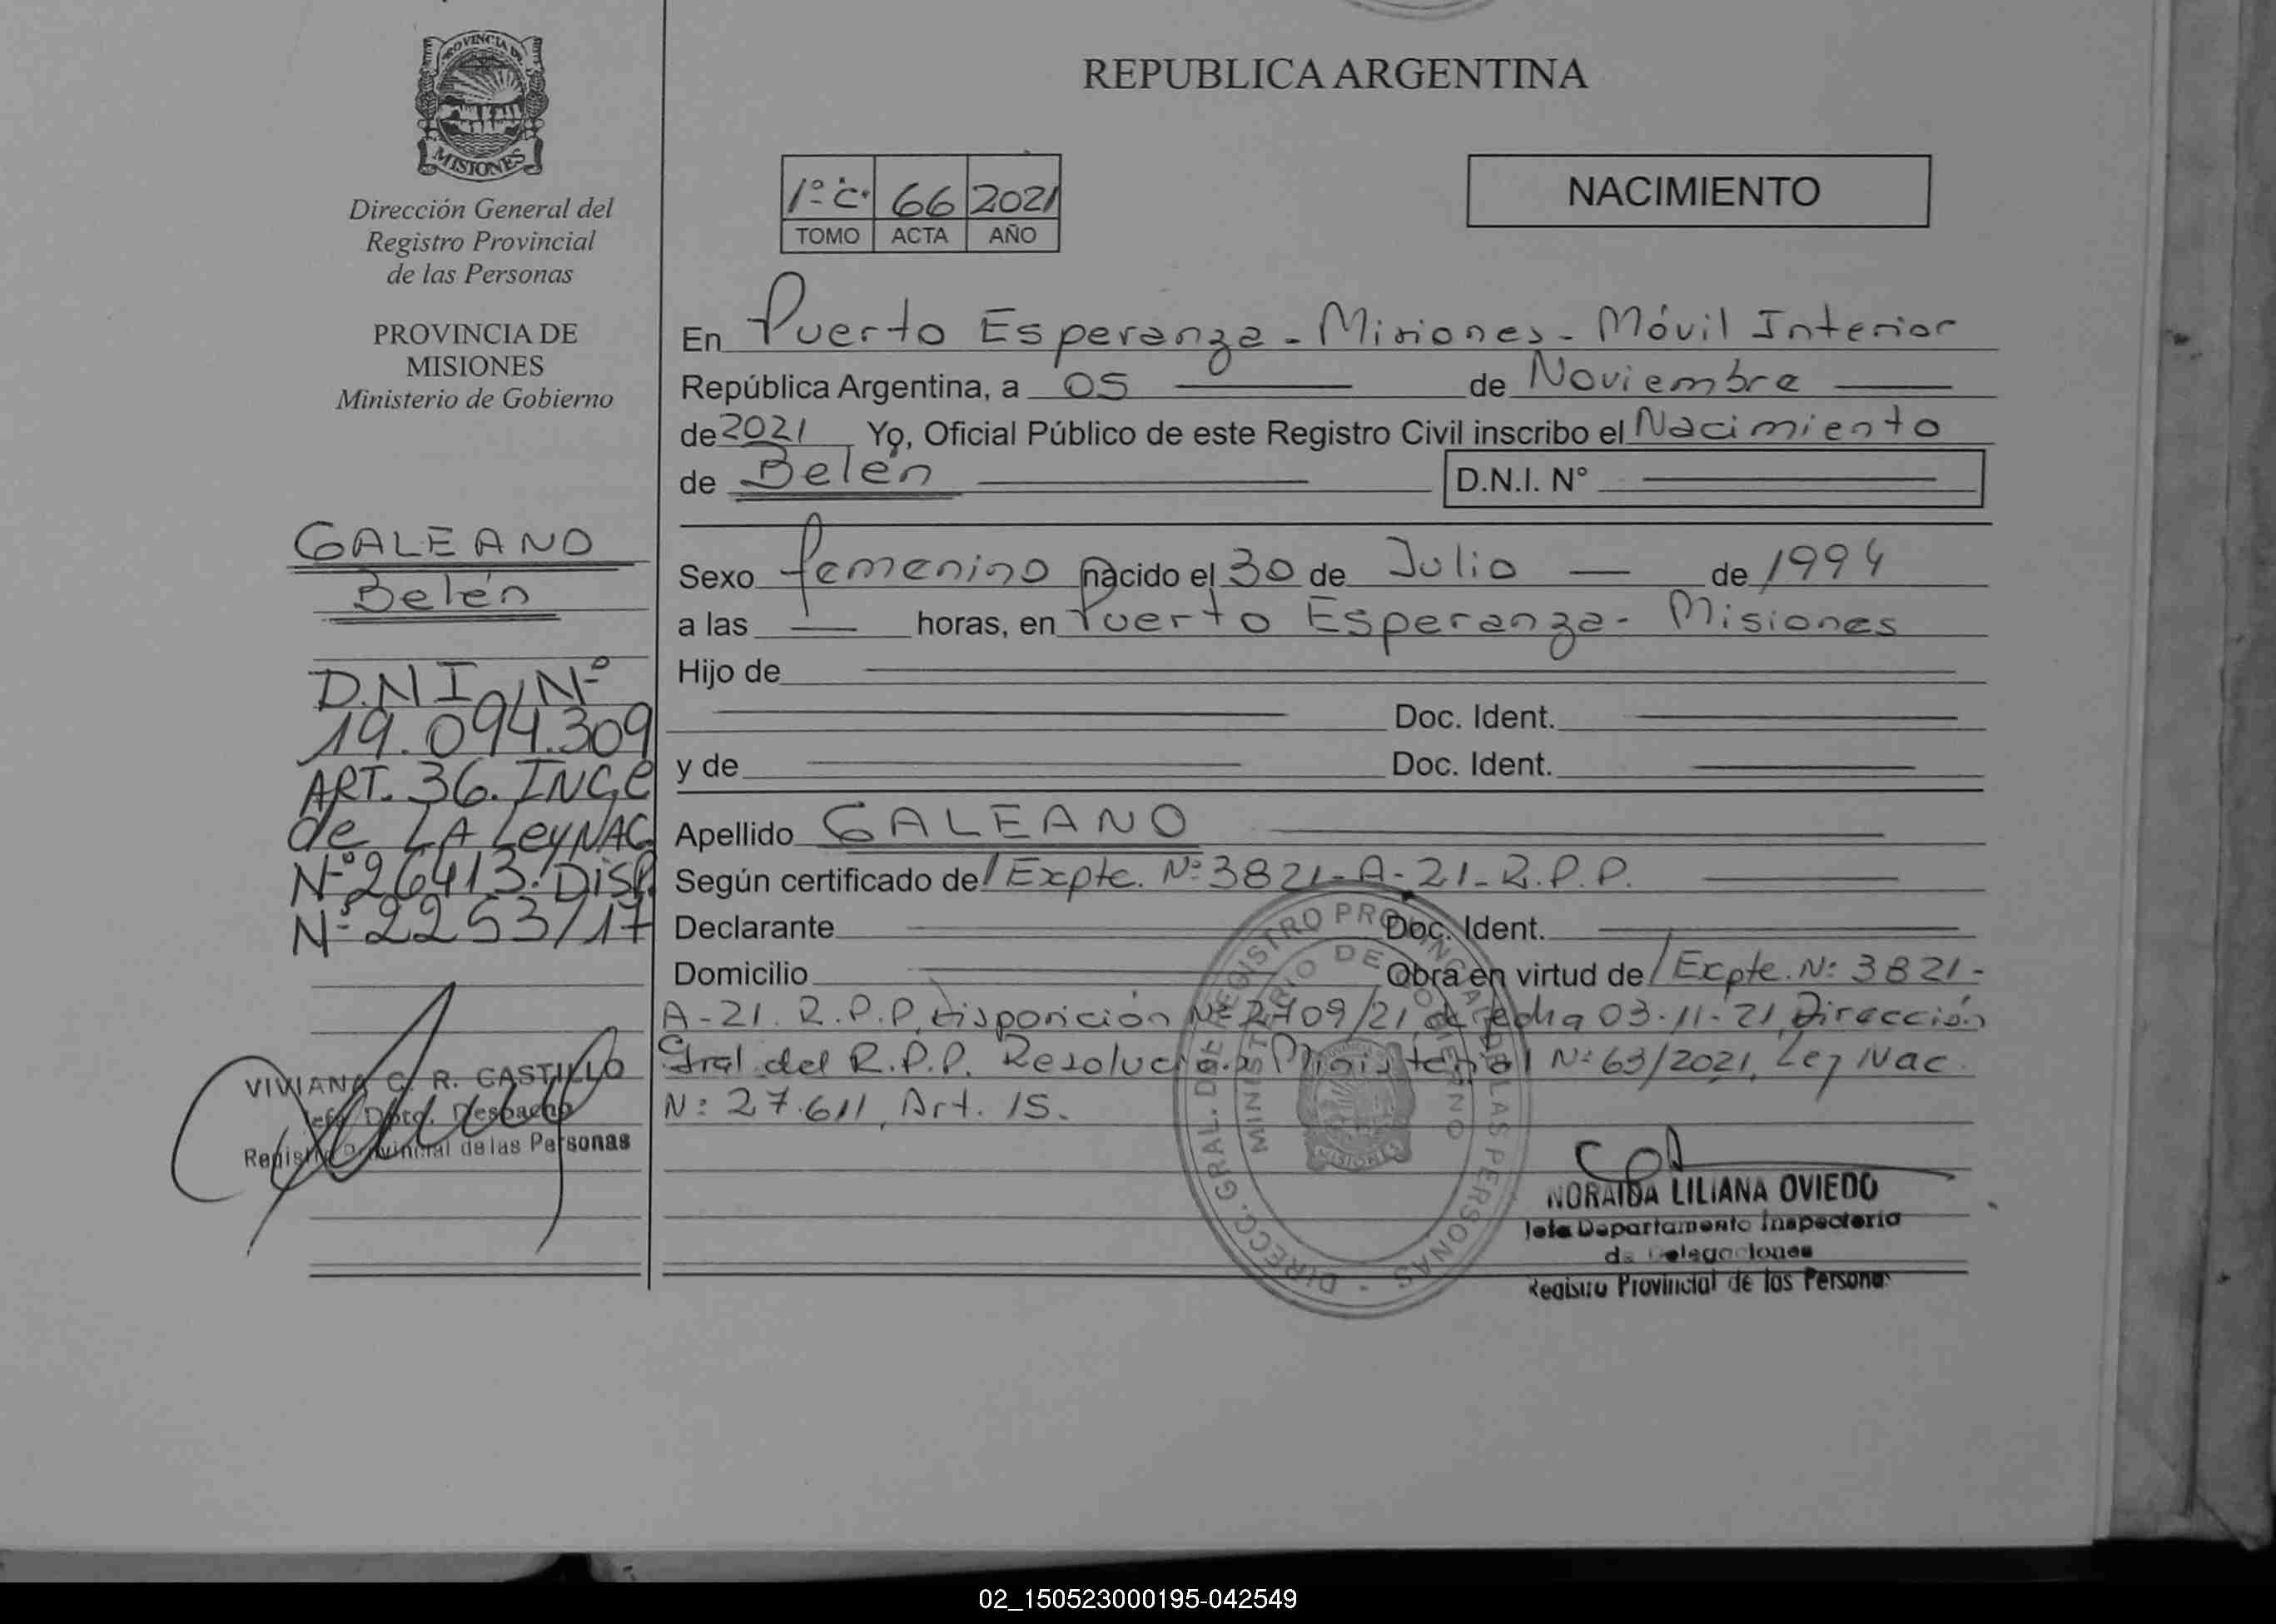 PROVINCIA DE
MISIONES
Dirección General del
Registro Provincial
de las Personas
PROVINCIA DE
MISIONES
Ministerio de Gobierno
GALEANO
Belén
D.N.I. Nº
19.094.309
ART. 36. INC. C
de LA Ley NAC
Nº 26413. DISP.
Nº 2253/17
VIVIANA C. R. CASTILLO
Jefe Dpto. Despacho
Registro Provincial de las Personas
REPUBLICA ARGENTINA
1º C. 66 2021
TOMO ACTA AÑO
NACIMIENTO
En Puerto Esperanza - Misiones - Móvil Interior
República Argentina, a 05 de Noviembre
de 2021 Yo, Oficial Público de este Registro Civil inscribo el Nacimiento
de Belén D.N.I. N°
Sexo femenino nacido el 30 de Julio de 1994
a las horas, en Puerto Esperanza - Misiones
Hijo de
Doc. Ident.
y de Doc. Ident.
Apellido GALEANO
Según certificado de/ Expte. Nº 3821-A-21-R.P.P.
Declarante Doc. Ident.
Domicilio Obra en virtud de/ Expte. Nº 3821-
A-21. R.P.P, disposición Nº 2709/21, de fecha 03-11-21, Dirección
Gral. del R.P.P. Resolución Ministerial Nº 63/2021, Ley Nac.
Nº 27.611, Art. 15.
DIRECC. GRAL. DE REGISTRO PROVINCIAL DE LAS PERSONAS
MINISTERIO DE GOBIERNO
MISIONES
NORAIDA LILIANA OVIEDO
Jefa Departamento Inspectoria
de Delegaciones
Registro Provincial de las Personas
02_150523000195-042549